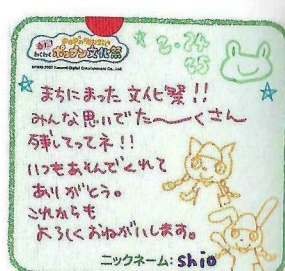 pop'n music
わくわくポップン文化祭
2.24
25
まちにまった文化祭!!
みんな思いでた〜くさん
残してってネ!!
いつもあそんでくれて
ありがとう。
これからも
よろしくおねがいします。
ニックネーム: shio